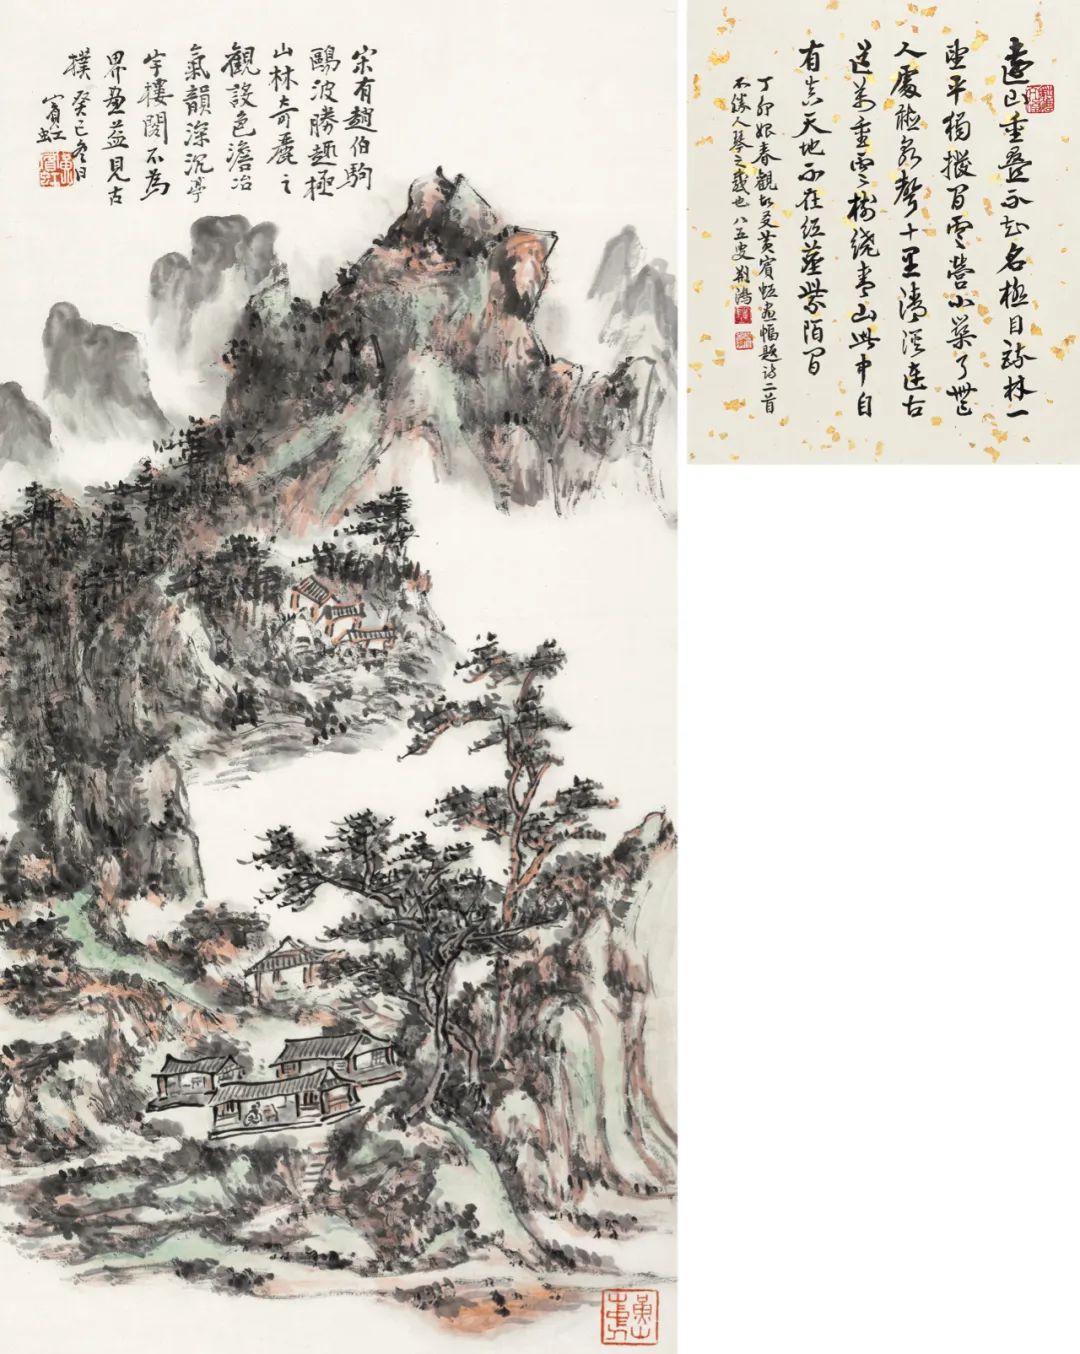 宋有趙伯駒
鷗波勝趣極
山林奇麗之
觀設色澹冶
氣韻深沉亭
宇樓閣不為
界畫益見古
樸 癸巳冬日
賓虹
遠山重疊不知名極目疏林一
望平獨掇閒雲營小築了無
人處聽泉聲十里清溪古
道萬重雲樹繞青山此中自
有真天地不在紅塵紫陌間
丁卯春觀故友黃賓虹畫幅題詩二首
不勝人琴之感也 八五叟荊鴻